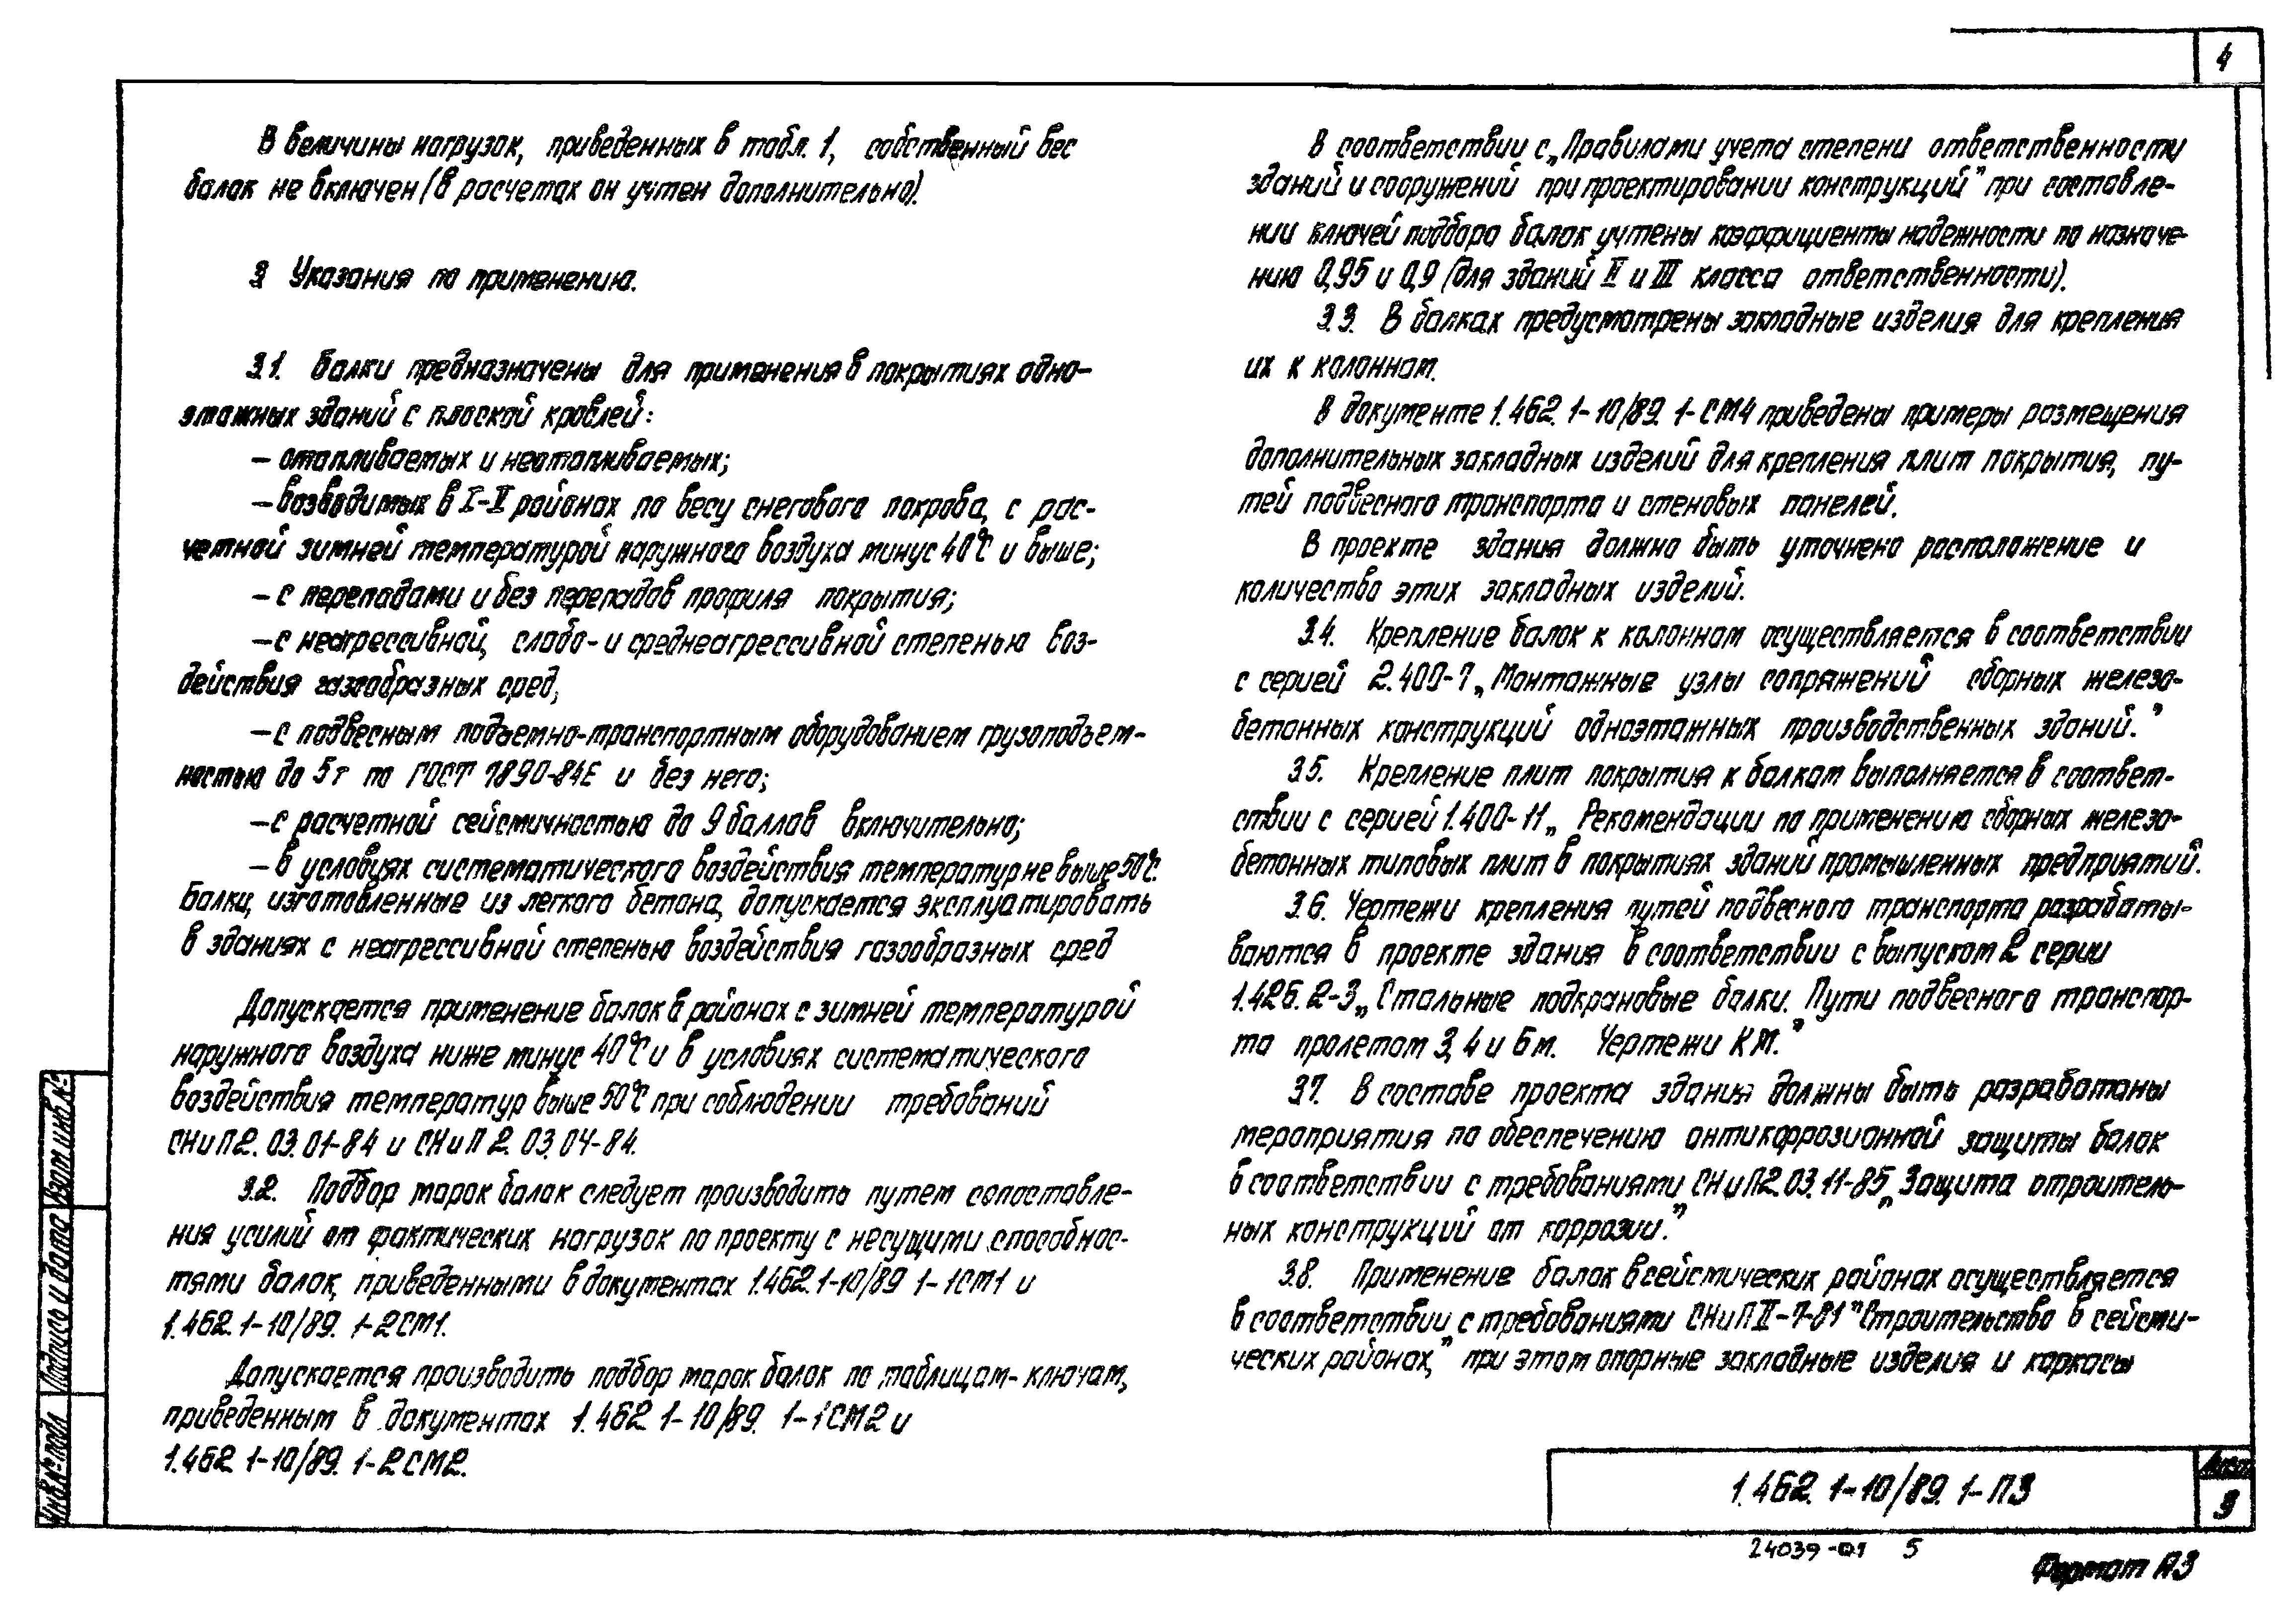 4
В величины нагрузок, приведенных в табл. 1, собственный вес
балок не включен (в расчетах он учтен дополнительно).
3 Указания по применению.
3.1. Балки предназначены для применения в покрытиях одно-
этажных зданий с плоской кровлей:
— отапливаемых и неотапливаемых;
— возводимых в I-V районах по весу снегового покрова, с рас-
четной зимней температурой наружного воздуха минус 40°С и выше;
— с перепадами и без перепадов профиля покрытия;
— с неагрессивной, слабо- и среднеагрессивной степенью воз-
действия газообразных сред;
— с подвесным подъемно-транспортным оборудованием грузоподъем-
ностью до 5т по ГОСТ 7890-84Е и без него;
— с расчетной сейсмичностью до 9 баллов включительно;
— в условиях систематического воздействия температур не выше 50°С.
Балки, изготовленные из легкого бетона, допускается эксплуатировать
в зданиях с неагрессивной степенью воздействия газообразных сред
Допускается применение балок в районах с зимней температурой
наружного воздуха ниже минус 40°С и в условиях систематического
воздействия температур выше 50°С при соблюдении требований
СНиП 2.03.01-84 и СНиП 2.03.04-84.
3.2. Подбор марок балок следует производить путем сопоставле-
ния усилий от фактических нагрузок по проекту с несущими способнос-
тями балок, приведенными в документах 1.462.1-10/89 1-1СМ1 и
1.462.1-10/89. 1-2СМ1.
Допускается производить подбор марок балок по таблицам-ключам,
приведенным в документах 1.462 1-10/89. 1-1СМ2 и
1.462 1-10/89. 1-2СМ2.
В соответствии с „Правилами учета степени ответственности
зданий и сооружений при проектировании конструкций" при составле-
нии ключей подбора балок учтены коэффициенты надежности по назначе-
нию 0,95 и 0,9 (для зданий II и III класса ответственности).
3.3. В балках предусмотрены закладные изделия для крепления
их к колоннам.
В документе 1.462.1-10/89. 1-СМ4 приведены примеры размещения
дополнительных закладных изделий для крепления плит покрытия, пу-
тей подвесного транспорта и стеновых панелей.
В проекте здания должно быть уточнено расположение и
количество этих закладных изделий.
3.4. Крепление балок к колоннам осуществляется в соответствии
с серией 2.400-7 „Монтажные узлы сопряжений сборных железо-
бетонных конструкций одноэтажных производственных зданий."
3.5. Крепление плит покрытия к балкам выполняется в соответ-
ствии с серией 1.400-11 „Рекомендации по применению сборных железо-
бетонных типовых плит в покрытиях зданий промышленных предприятий.
3.6. Чертежи крепления путей подвесного транспорта разрабаты-
ваются в проекте здания в соответствии с выпуском 2 серии
1.426.2-3 „Стальные подкрановые балки. Пути подвесного транспор-
та пролетом 3,4 и 6 м. Чертежи КМ."
3.7. В составе проекта здания должны быть разработаны
мероприятия по обеспечению антикоррозионной защиты балок
в соответствии с требованиями СНиП 2.03.11-85 „Защита строитель-
ных конструкций от коррозии."
3.8. Применение балок в сейсмических районах осуществляется
в соответствии с требованиями СНиП II-7-81 "Строительство в сейсми-
ческих районах," при этом опорные закладные изделия и каркасы
Инв.№ подл. Подпись и дата Взам инв.№
1.462.1-10/89. 1-ПЗ
Лист
3
24039-01 5
Формат А3